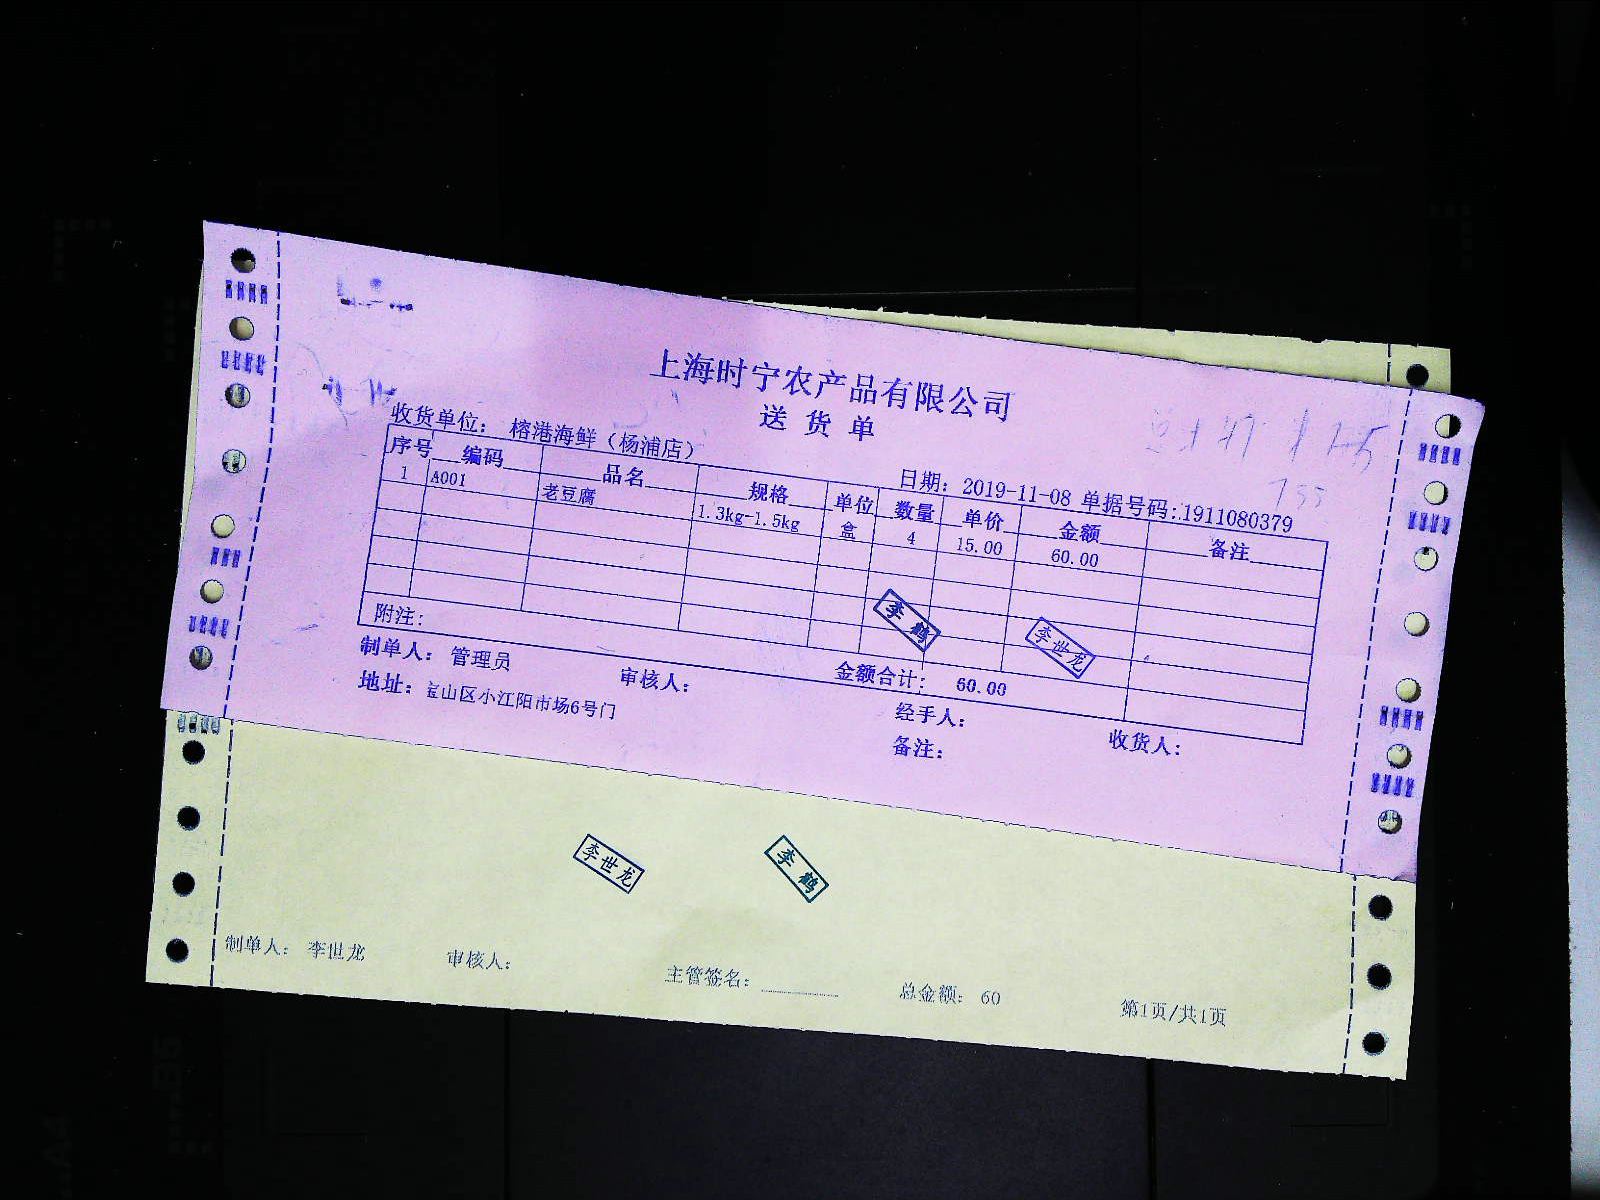 上海时宁农产品有限公司
送 货 单
收货单位: 榕港海鲜（杨浦店） 日期: 2019-11-08 单据号码:1911080379
序号 编码 品名 规格 单位 数量 单价 金额 备注
1 A001 老豆腐 1.3kg-1.5kg 盒 4 15.00 60.00
李鹤 李世龙
附注:
金额合计: 60.00
制单人: 管理员 审核人: 经手人: 收货人:
地址: 宝山区小江阳市场6号门 备注:
李世龙 李鹤
制单人: 李世龙 审核人: 主管签名: 总金额: 60 第1页/共1页